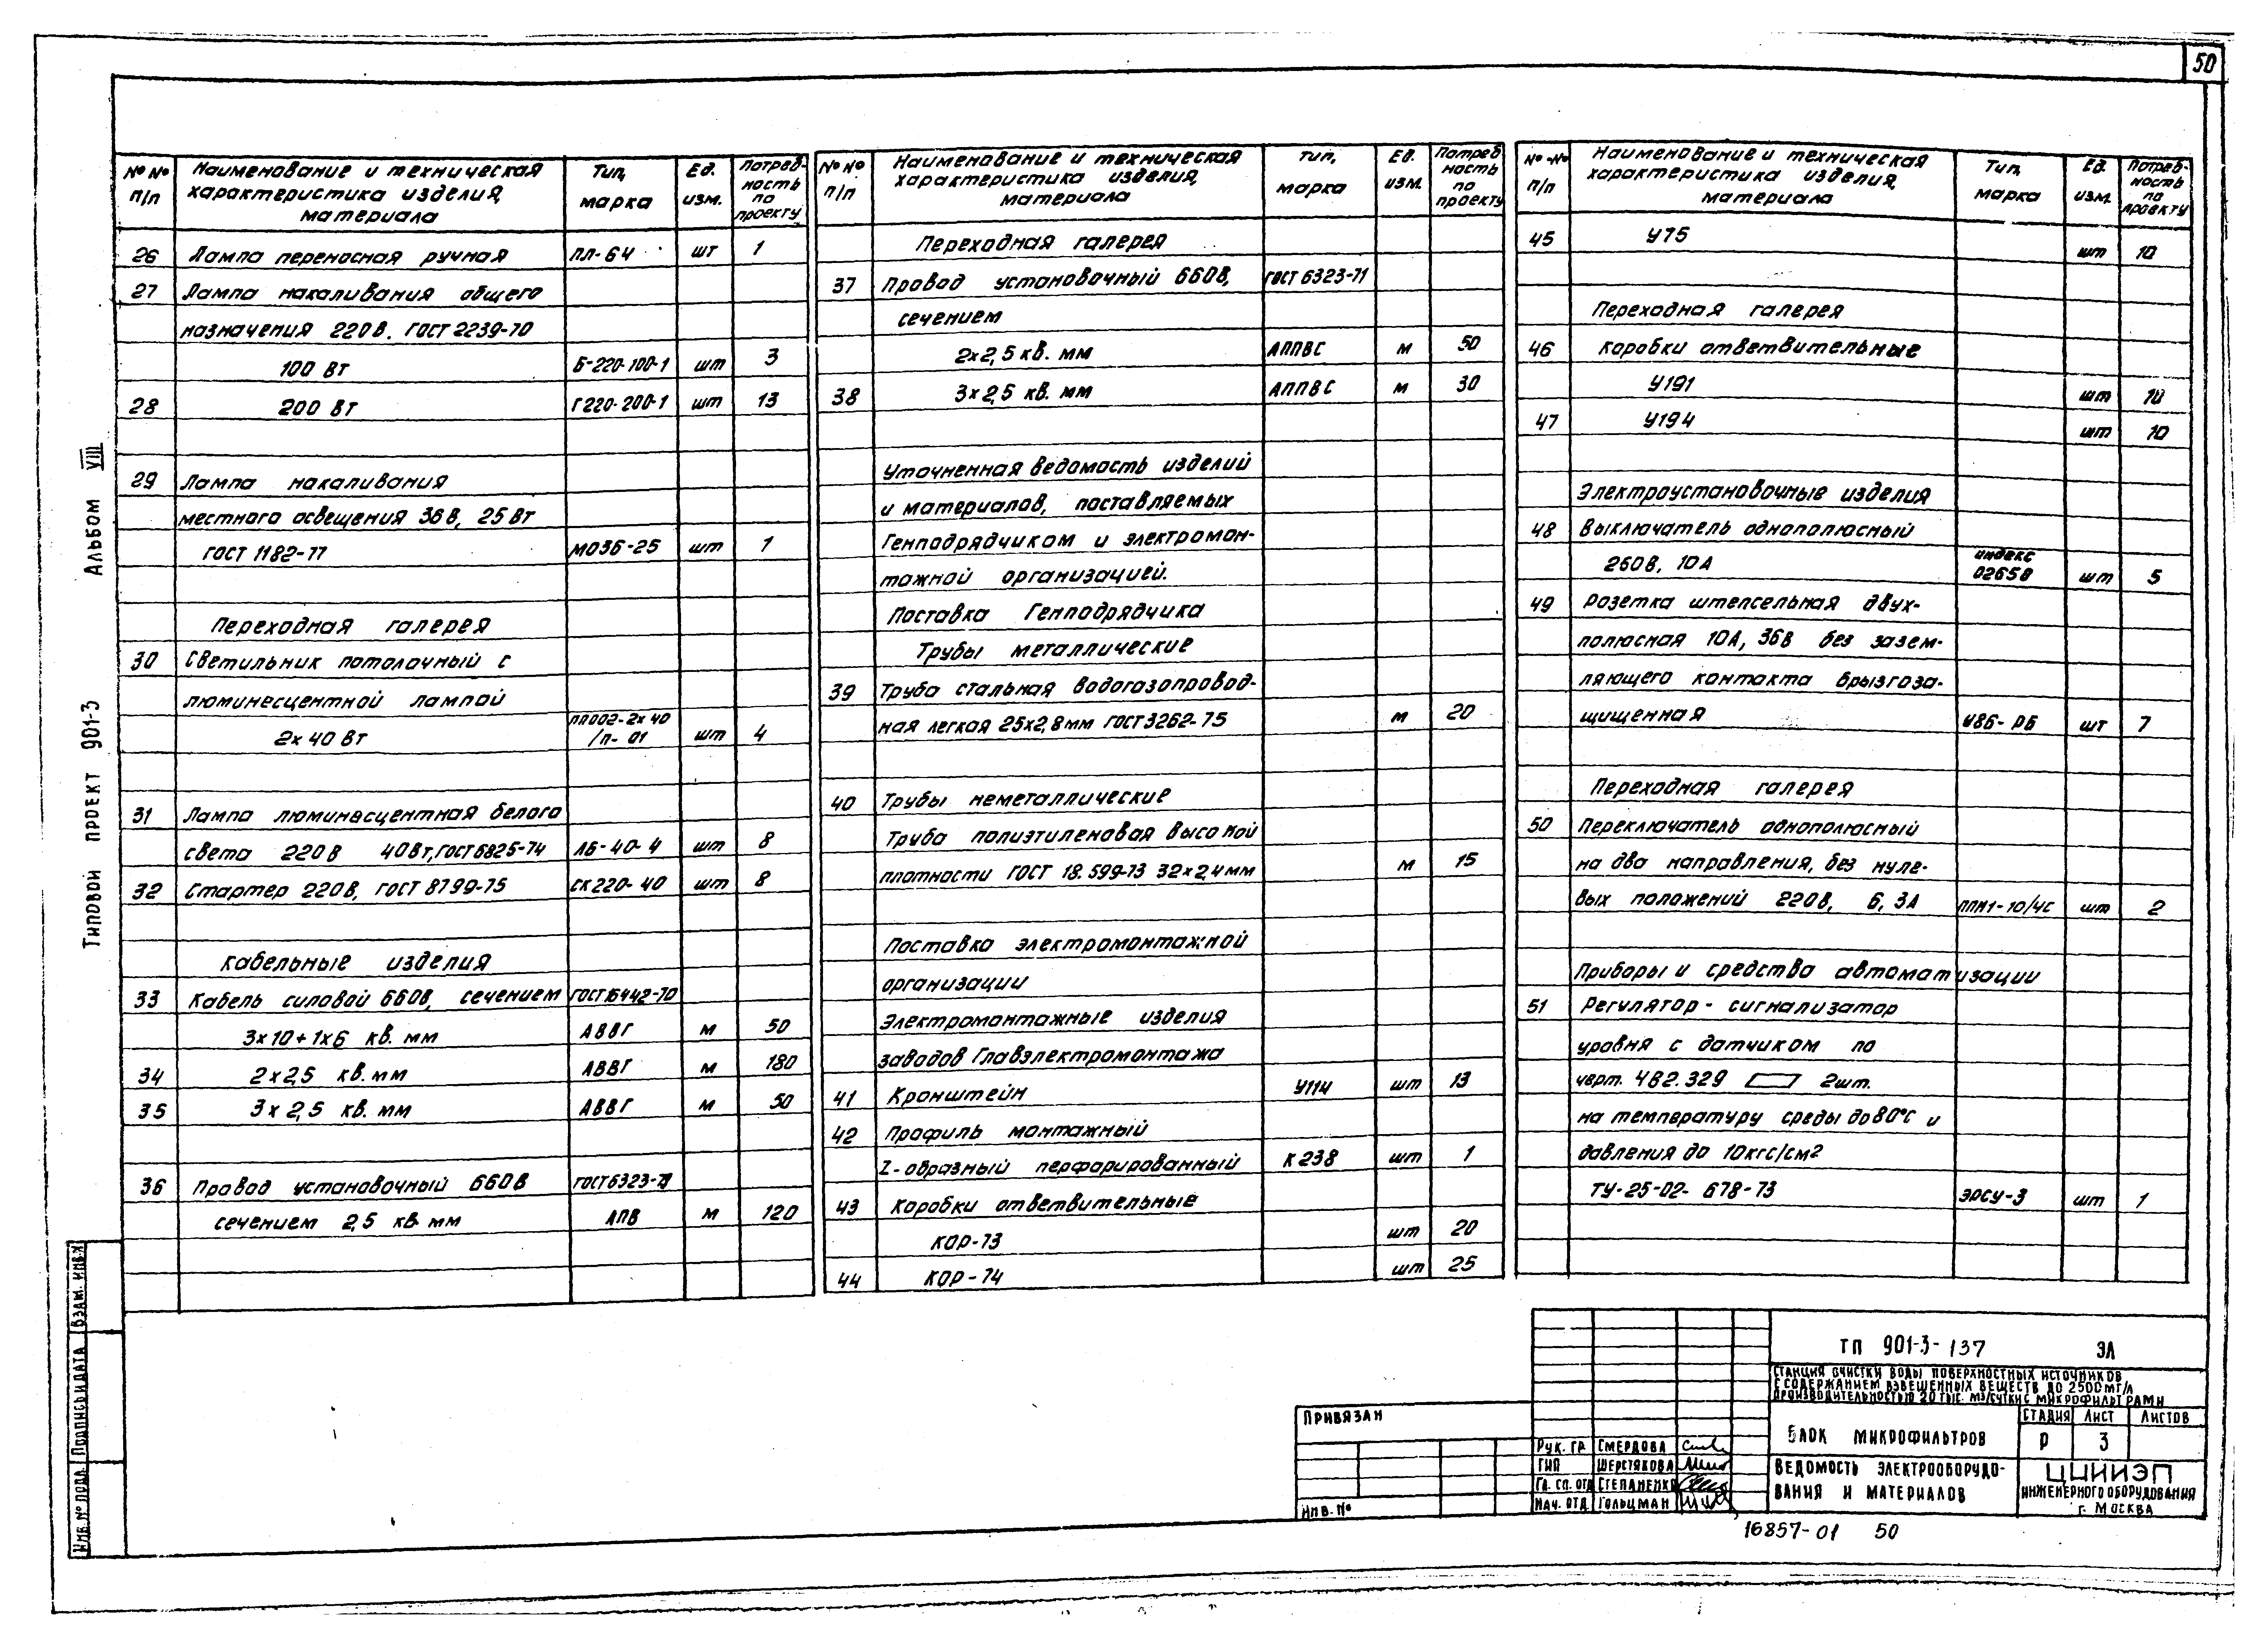 50
№ № п/п Наименование и техническая характеристика изделия, материала Тип, марка Ед. изм. Потребность по проекту
26 Лампа переносная ручная ПЛ-64 шт 1
27 Лампа накаливания общего
назначения 220В. ГОСТ 2239-70
100 Вт Б-220-100-1 шт 3
28 200 Вт Г220-200-1 шт 13
29 Лампа накаливания
местного освещения 36В, 25Вт
ГОСТ 1182-77 МО36-25 шт 1
Переходная галерея
30 Светильник потолочный с
люминесцентной лампой
2х40 Вт ПП002-2х40 /П-01 шт 4
31 Лампа люминесцентная белого
света 220В 40Вт, ГОСТ 6825-74 ЛБ-40-4 шт 8
32 Стартер 220В, ГОСТ 8799-75 СК220-40 шт 8
Кабельные изделия
33 Кабель силовой 660В, сечением ГОСТ 16442-70
3х10+1х6 кв. мм АВВГ м 50
34 2х2,5 кв. мм АВВГ м 180
35 3х2,5 кв. мм АВВГ м 50
36 Провод установочный 660В ГОСТ 6323-71
сечением 2,5 кв мм АПВ м 120
№ № п/п Наименование и техническая характеристика изделия, материала Тип, марка Ед. изм. Потребность по проекту
Переходная галерея
37 Провод установочный 660В, ГОСТ 6323-71
сечением
2х2,5 кв. мм АППВС м 50
38 3х2,5 кв. мм АППВС м 30
Уточненная ведомость изделий
и материалов, поставляемых
Генподрядчиком и электромон-
тажной организацией.
Поставка Генподрядчика
Трубы металлические
39 Труба стальная водогазопровод-
ная легкая 25х2,8мм ГОСТ 3262-75 м 20
40 Трубы неметаллические
Труба полиэтиленовая высокой
плотности ГОСТ 18.599-73 32х2,4мм м 15
Поставка электромонтажной
организации
Электромонтажные изделия
заводов Главэлектромонтажа
41 Кронштейн У114 шт 13
42 Профиль монтажный
Z-образный перфорированный К238 шт 1
43 Коробки ответвительные
КОР-73 шт 20
44 КОР-74 шт 25
№-№ п/п Наименование и техническая характеристика изделия, материала Тип, марка Ед. изм. Потребность по проекту
45 У75 шт 10
Переходная галерея
46 Коробки ответвительные
У191 шт 10
47 У194 шт 10
Электроустановочные изделия
48 Выключатель однополюсный
260В, 10А индекс 02650 шт 5
49 Розетка штепсельная двух-
полюсная 10А, 36В без зазем-
ляющего контакта брызгоза-
щищенная У86-РБ шт 7
Переходная галерея
50 Переключатель однополюсный
на два направления, без нуле-
вых положений 220В, 6,3А ППМ1-10/ЧС шт 2
Приборы и средства автоматизации
51 Регулятор-сигнализатор
уровня с датчиком по
черт. 4В2.329 2шт.
на температуру среды до 80°С и
давления до 10кгс/см2
ТУ-25-02-678-73 ЭРСУ-3 шт 1
Типовой проект 901-3 Альбом VIII
Инв. № подл. Подпись и дата Взам. инв.№
ТП 901-3-137 ЭЛ
Станция очистки воды поверхностных источников
с содержанием взвешенных веществ до 2500мг/л
производительностью 20 тыс. м3/сутки с микрофильтрами
Привязан
Инв. №
Рук. гр. Смердова
ГИП Шерстякова
Гл. сп. отд Степаненко
Нач. отд Гольцман
Блок микрофильтров
Стадия Лист Листов
Р 3
Ведомость электрооборудо-
вания и материалов
ЦНИИЭП
инженерного оборудования
г. Москва
16857-01 50